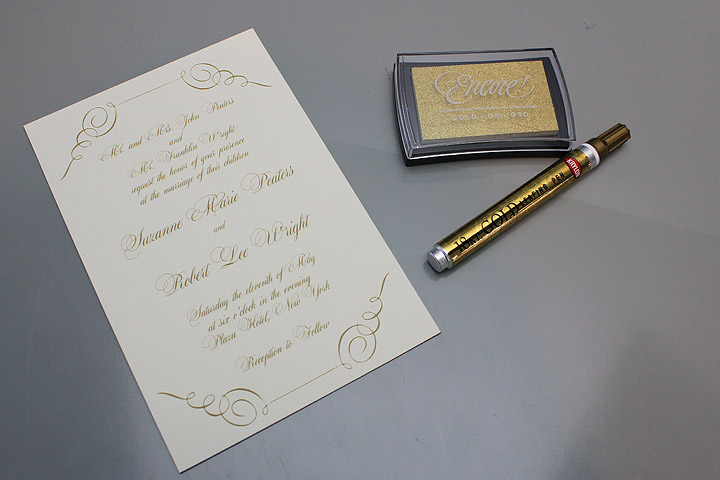 Mr. and Ms. John Peaters
and
Mr. Franklin Wright
request the honor of your presence
at the marriage of their children
Suzanne Marie Peaters
and
Robert Lee Wright
Saturday the eleventh of May
at six o'clock in the evening
Plaza Hotel, New York
Reception to Follow
Encore!
GOLD - OR - ORO
18KT. GOLD LEAFING PEN
KRYLON